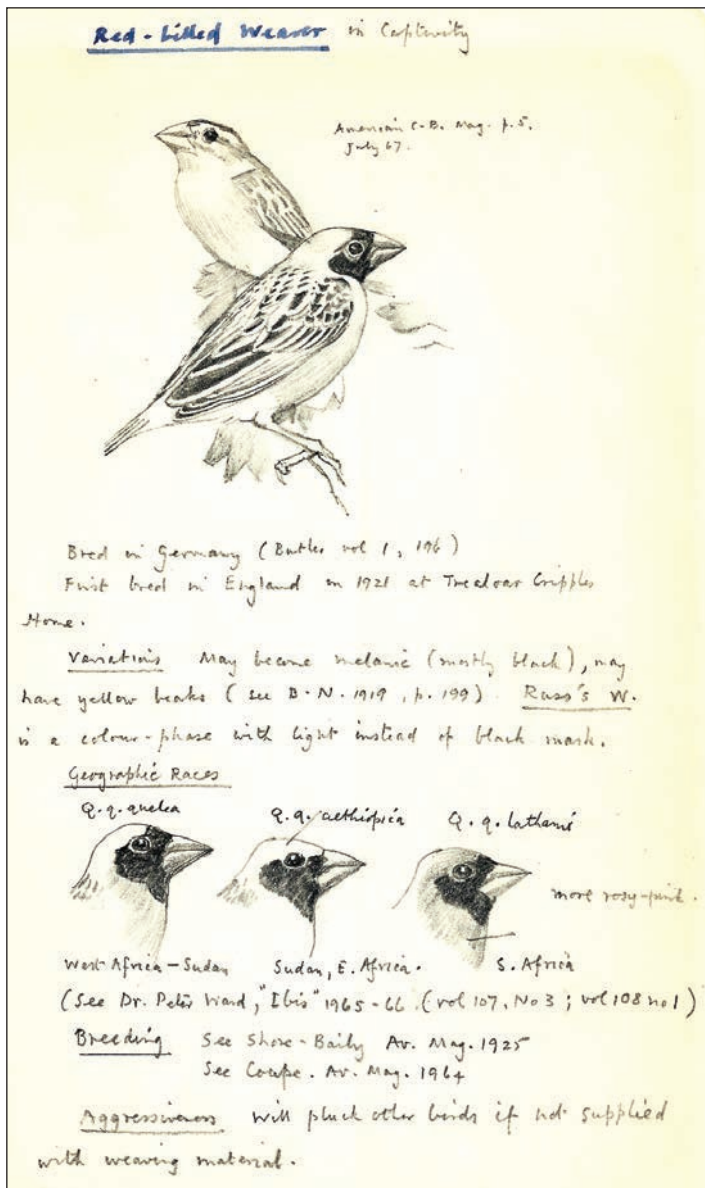 Red-billed Weaver in Captivity
American C-B. Mag. p.5.
July 67.
Bred in Germany (Butler vol 1, 196)
First bred in England in 1921 at Treloar Cripples
Home.
Variations May become melanic (mostly black), may
have yellow beaks (see B.N. 1919, p. 199). Russ's W.
is a colour-phase with light instead of black mask.
Geographic Races
Q. q. quelea Q. q. aethiopica Q. q. lathami
more rosy-pink.
West Africa - Sudan Sudan, E. Africa. S. Africa
(See Dr. Peter Ward, "Ibis" 1965-66. (vol 107, No 3; vol 108 no 1)
Breeding See Shore-Baily Av. Mag. 1925
See Coupe. Av. Mag. 1964
Aggressiveness will pluck other birds if not supplied
with weaving material.